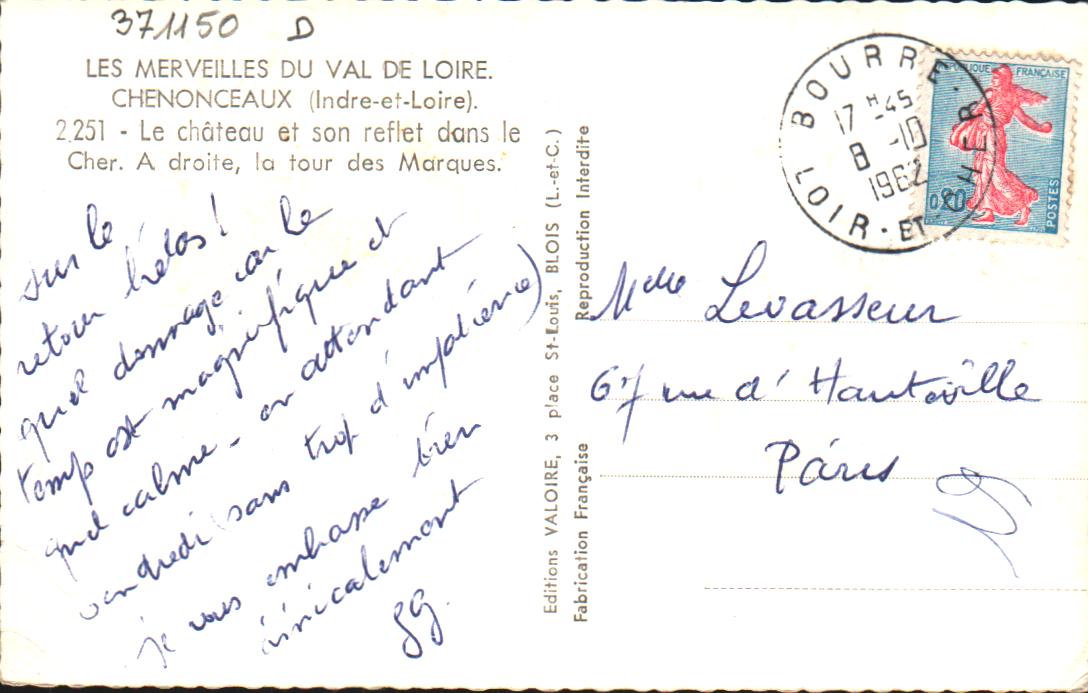 371150 D
LES MERVEILLES DU VAL DE LOIRE.
CHENONCEAUX (Indre-et-Loire).
2.251 - Le château et son reflet dans le
Cher. A droite, la tour des Marques.
sur le
retour hélas!
quel dommage car le
temps est magnifique et
quel calme - en attendant
vendredi (sans trop d'impatience)
je vous embrasse bien
amicalement
gg.
Editions VALOIRE, 3 place St-Louis, BLOIS (L.-et-C.)
Fabrication Française
Reproduction Interdite
BOURRE
17 H -45
8 -10
1962
LOIR-ET-CHER.
REPUBLIQUE FRANÇAISE
0,20
POSTES
Melle Levasseur
67 rue d'Hauteville
Paris